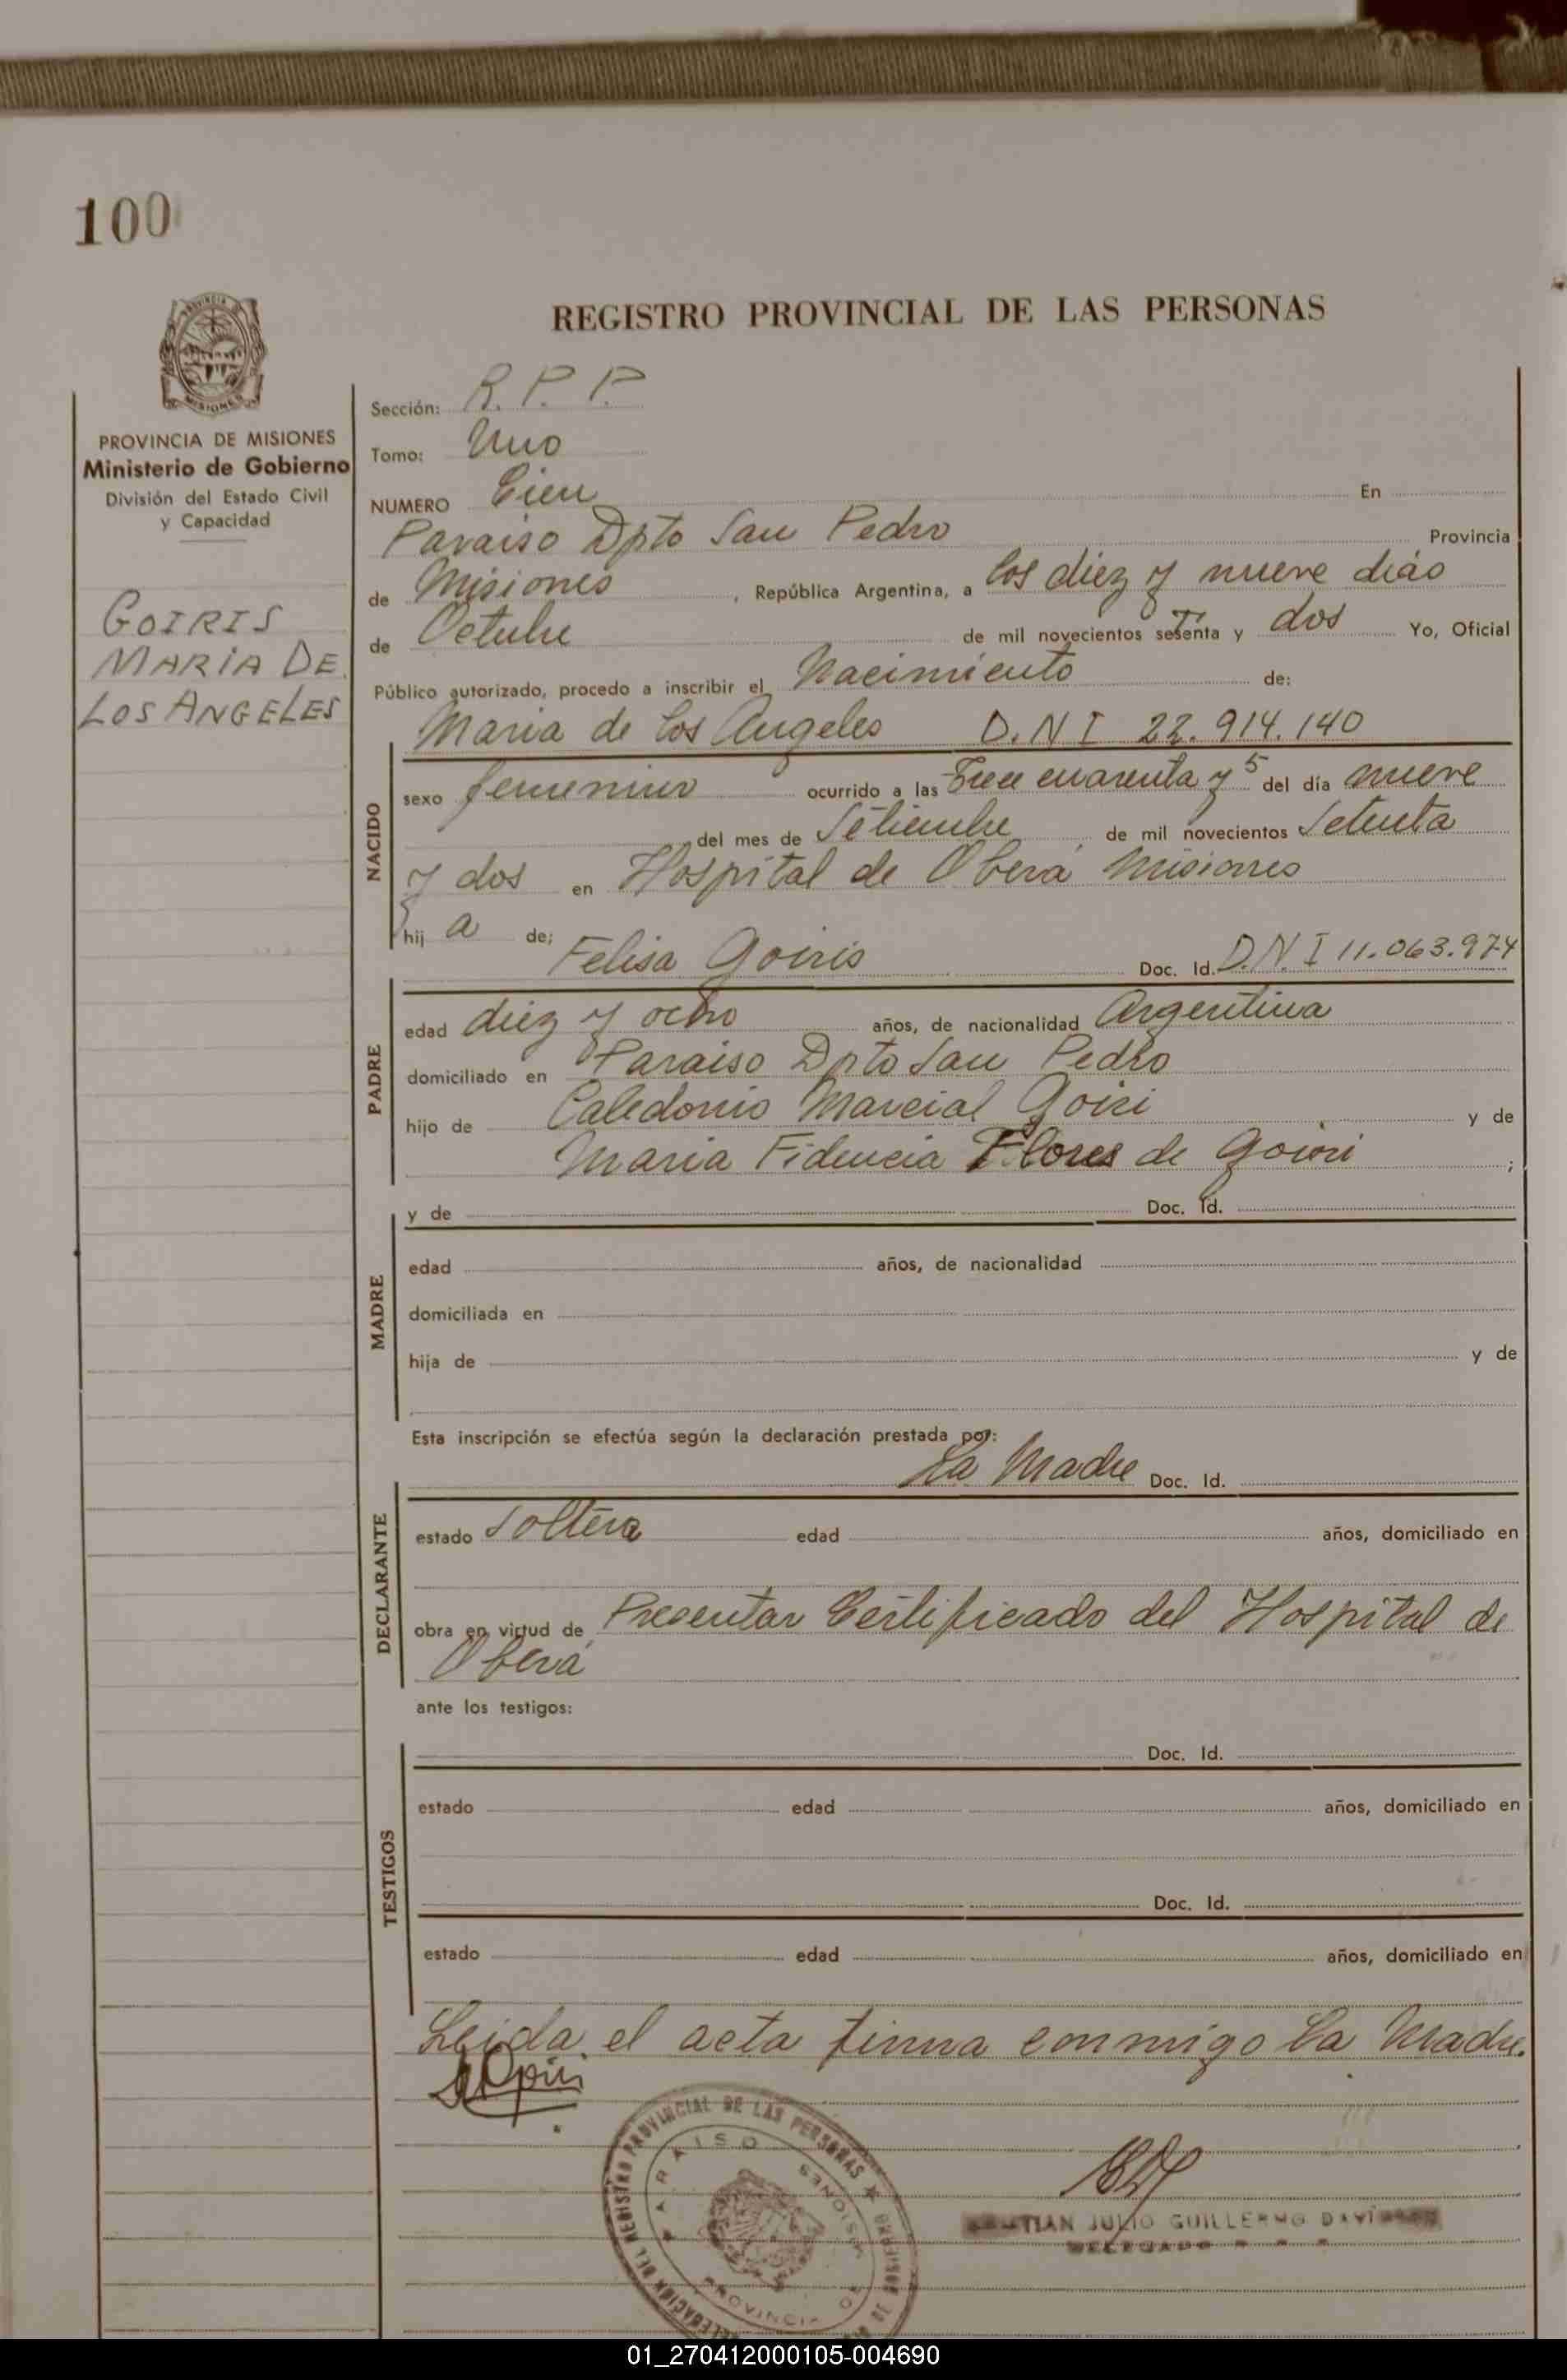 100
REGISTRO PROVINCIAL DE LAS PERSONAS
PROVINCIA DE MISIONES
Ministerio de Gobierno
División del Estado Civil
y Capacidad
GOIRIS
MARIA DE
LOS ANGELES
Sección: R. P. P.
Tomo: Uno
NUMERO Cien En
Paraiso Dpto San Pedro Provincia
de Misiones, República Argentina, a los diez y nueve dias
de Octubre de mil novecientos setenta y dos Yo, Oficial
Público autorizado, procedo a inscribir el Nacimiento de:
Maria de los Angeles D.N I 22.914.140
NACIDO
sexo femenino ocurrido a las Trece cuarenta y 5 del día nueve
del mes de Setiembre de mil novecientos Setenta
y dos en Hospital de Oberá Misiones
hij a de;
Felisa Goiris Doc. Id. D.N.I 11.063.974
PADRE
edad diez y ocho años, de nacionalidad Argentina
domiciliado en Paraiso Dpto San Pedro
hijo de Caledonio Marcial Goiri y de
Maria Fidencia Flores de Goiri ;
y de Doc. Id.
MADRE
edad años, de nacionalidad
domiciliada en
hija de y de
Esta inscripción se efectúa según la declaración prestada por:
La Madre Doc. Id.
DECLARANTE
estado Soltera edad años, domiciliado en
obra en virtud de Presentar Certificado del Hospital de
Oberá
ante los testigos:
Doc. Id.
TESTIGOS
estado edad años, domiciliado en
Doc. Id.
estado edad años, domiciliado en
Leida el acta firma conmigo la Madre.
DELEGACION DEL REGISTRO PROVINCIAL DE LAS PERSONAS
PARAISO
PROVINCIA DE MISIONES
JULIO GUILLERMO
01_270412000105-004690